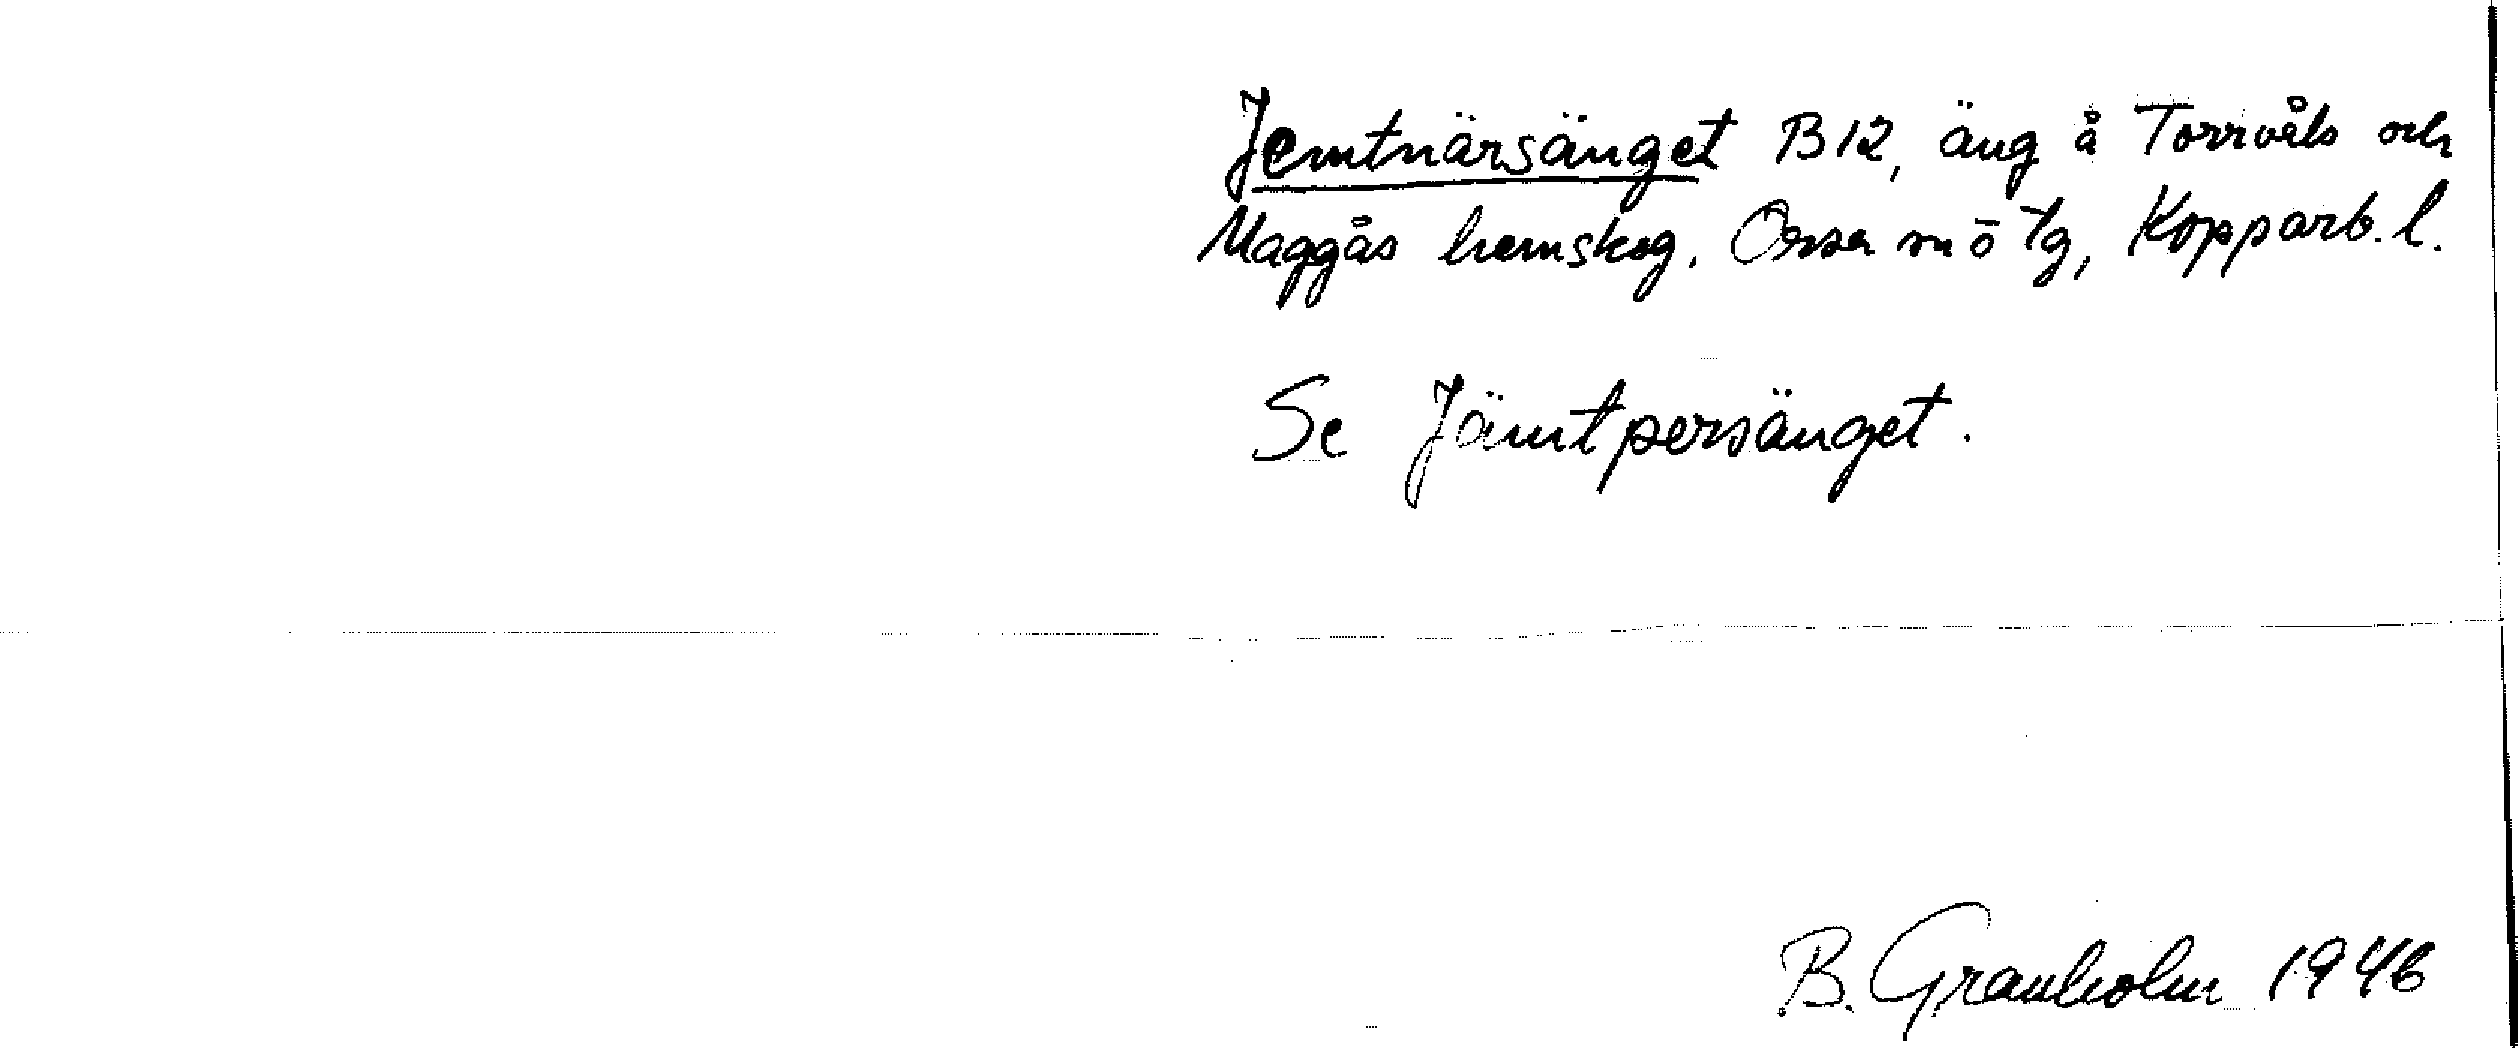 Jemtnärsänget B12, äng å Torrvåls och
Maggås hemskog, Orsa sn ö tg, Kopparb. l.
Se Jämtpersänget.
B. Granholm 1946